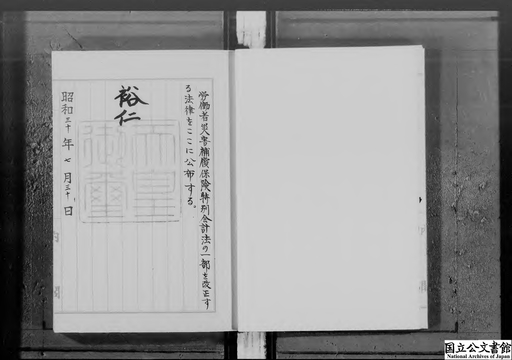 労働者災害補償保険特別会計法の一部を改正す
る法律をここに公布する。
裕仁
天皇御璽
昭和三十年七月三十日
国立公文書館
National Archives of Japan